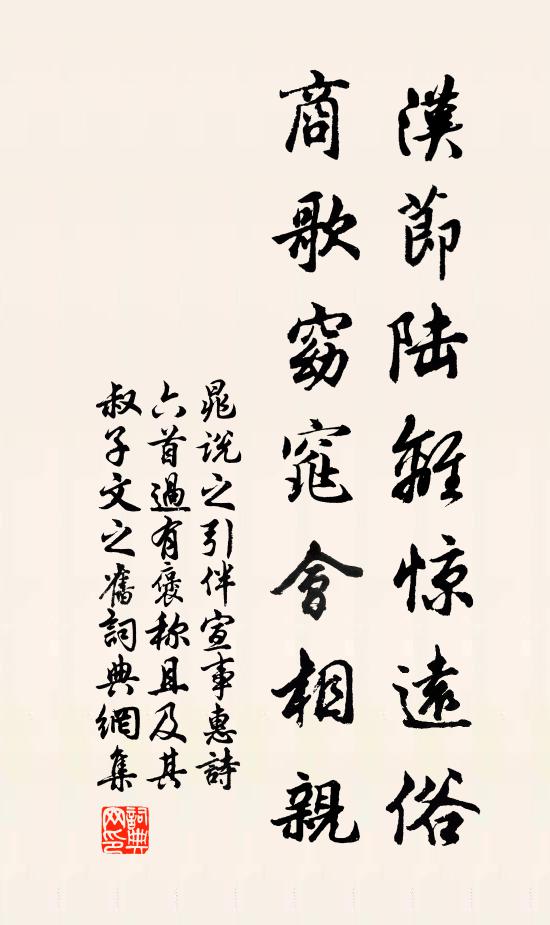 漢節陆離惊遠俗
商歌窈窕會相親
晁说之引伴宣事惠詩
六首過有褒称且及其
叔子文之舊詞典網集
詞典网印